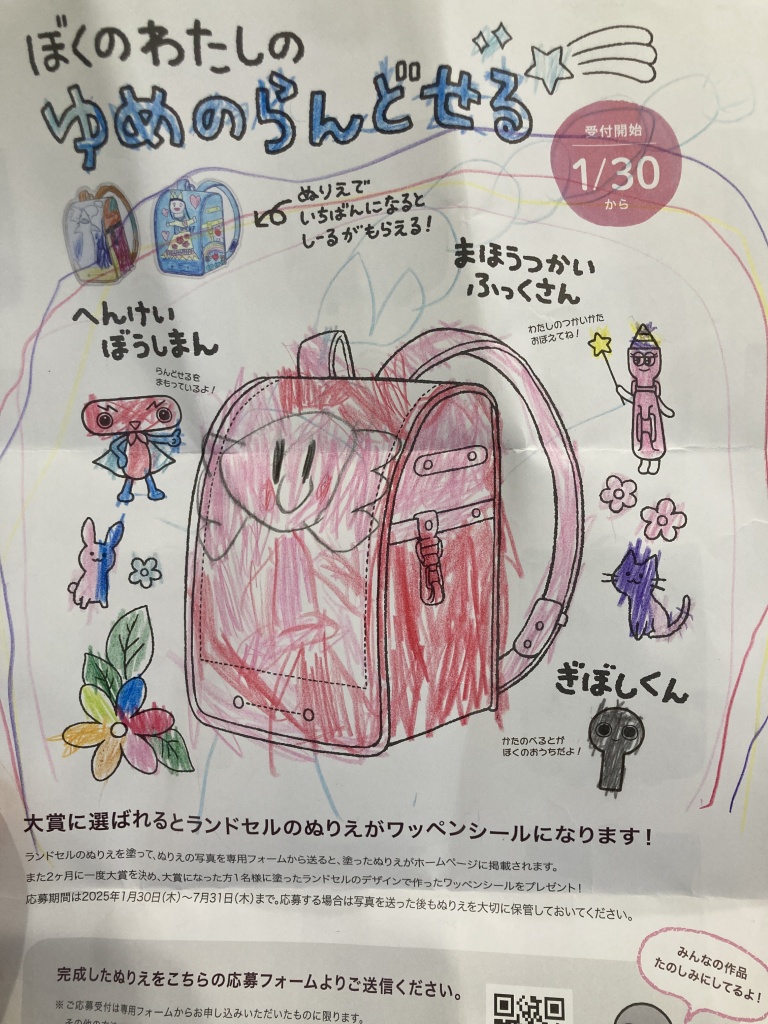 ぼくのわたしの
ゆめのらんどせる
受付開始
1/30
から
ぬりえで
いちばんになると
しーるがもらえる!
まほうつかい
ふっくさん
わたしのつかいかた
おぼえてね!
へんけい
ぼうしまん
らんどせるを
まもっているよ!
ぎぼしくん
かたのべるとが
ぼくのおうちだよ!
大賞に選ばれるとランドセルのぬりえがワッペンシールになります!
ランドセルのぬりえを塗って、ぬりえの写真を専用フォームから送ると、塗ったぬりえがホームページに掲載されます。
また2ヶ月に一度大賞を決め、大賞になった方1名様に塗ったランドセルのデザインで作ったワッペンシールをプレゼント!
応募期間は2025年1月30日(木)~7月31日(木)まで。応募する場合は写真を送った後もぬりえを大切に保管しておいてください。
みんなの作品
たのしみにしてるよ!
完成したぬりえをこちらの応募フォームよりご送信ください。
※ご応募受付は専用フォームからお申し込みいただいたものに限ります。